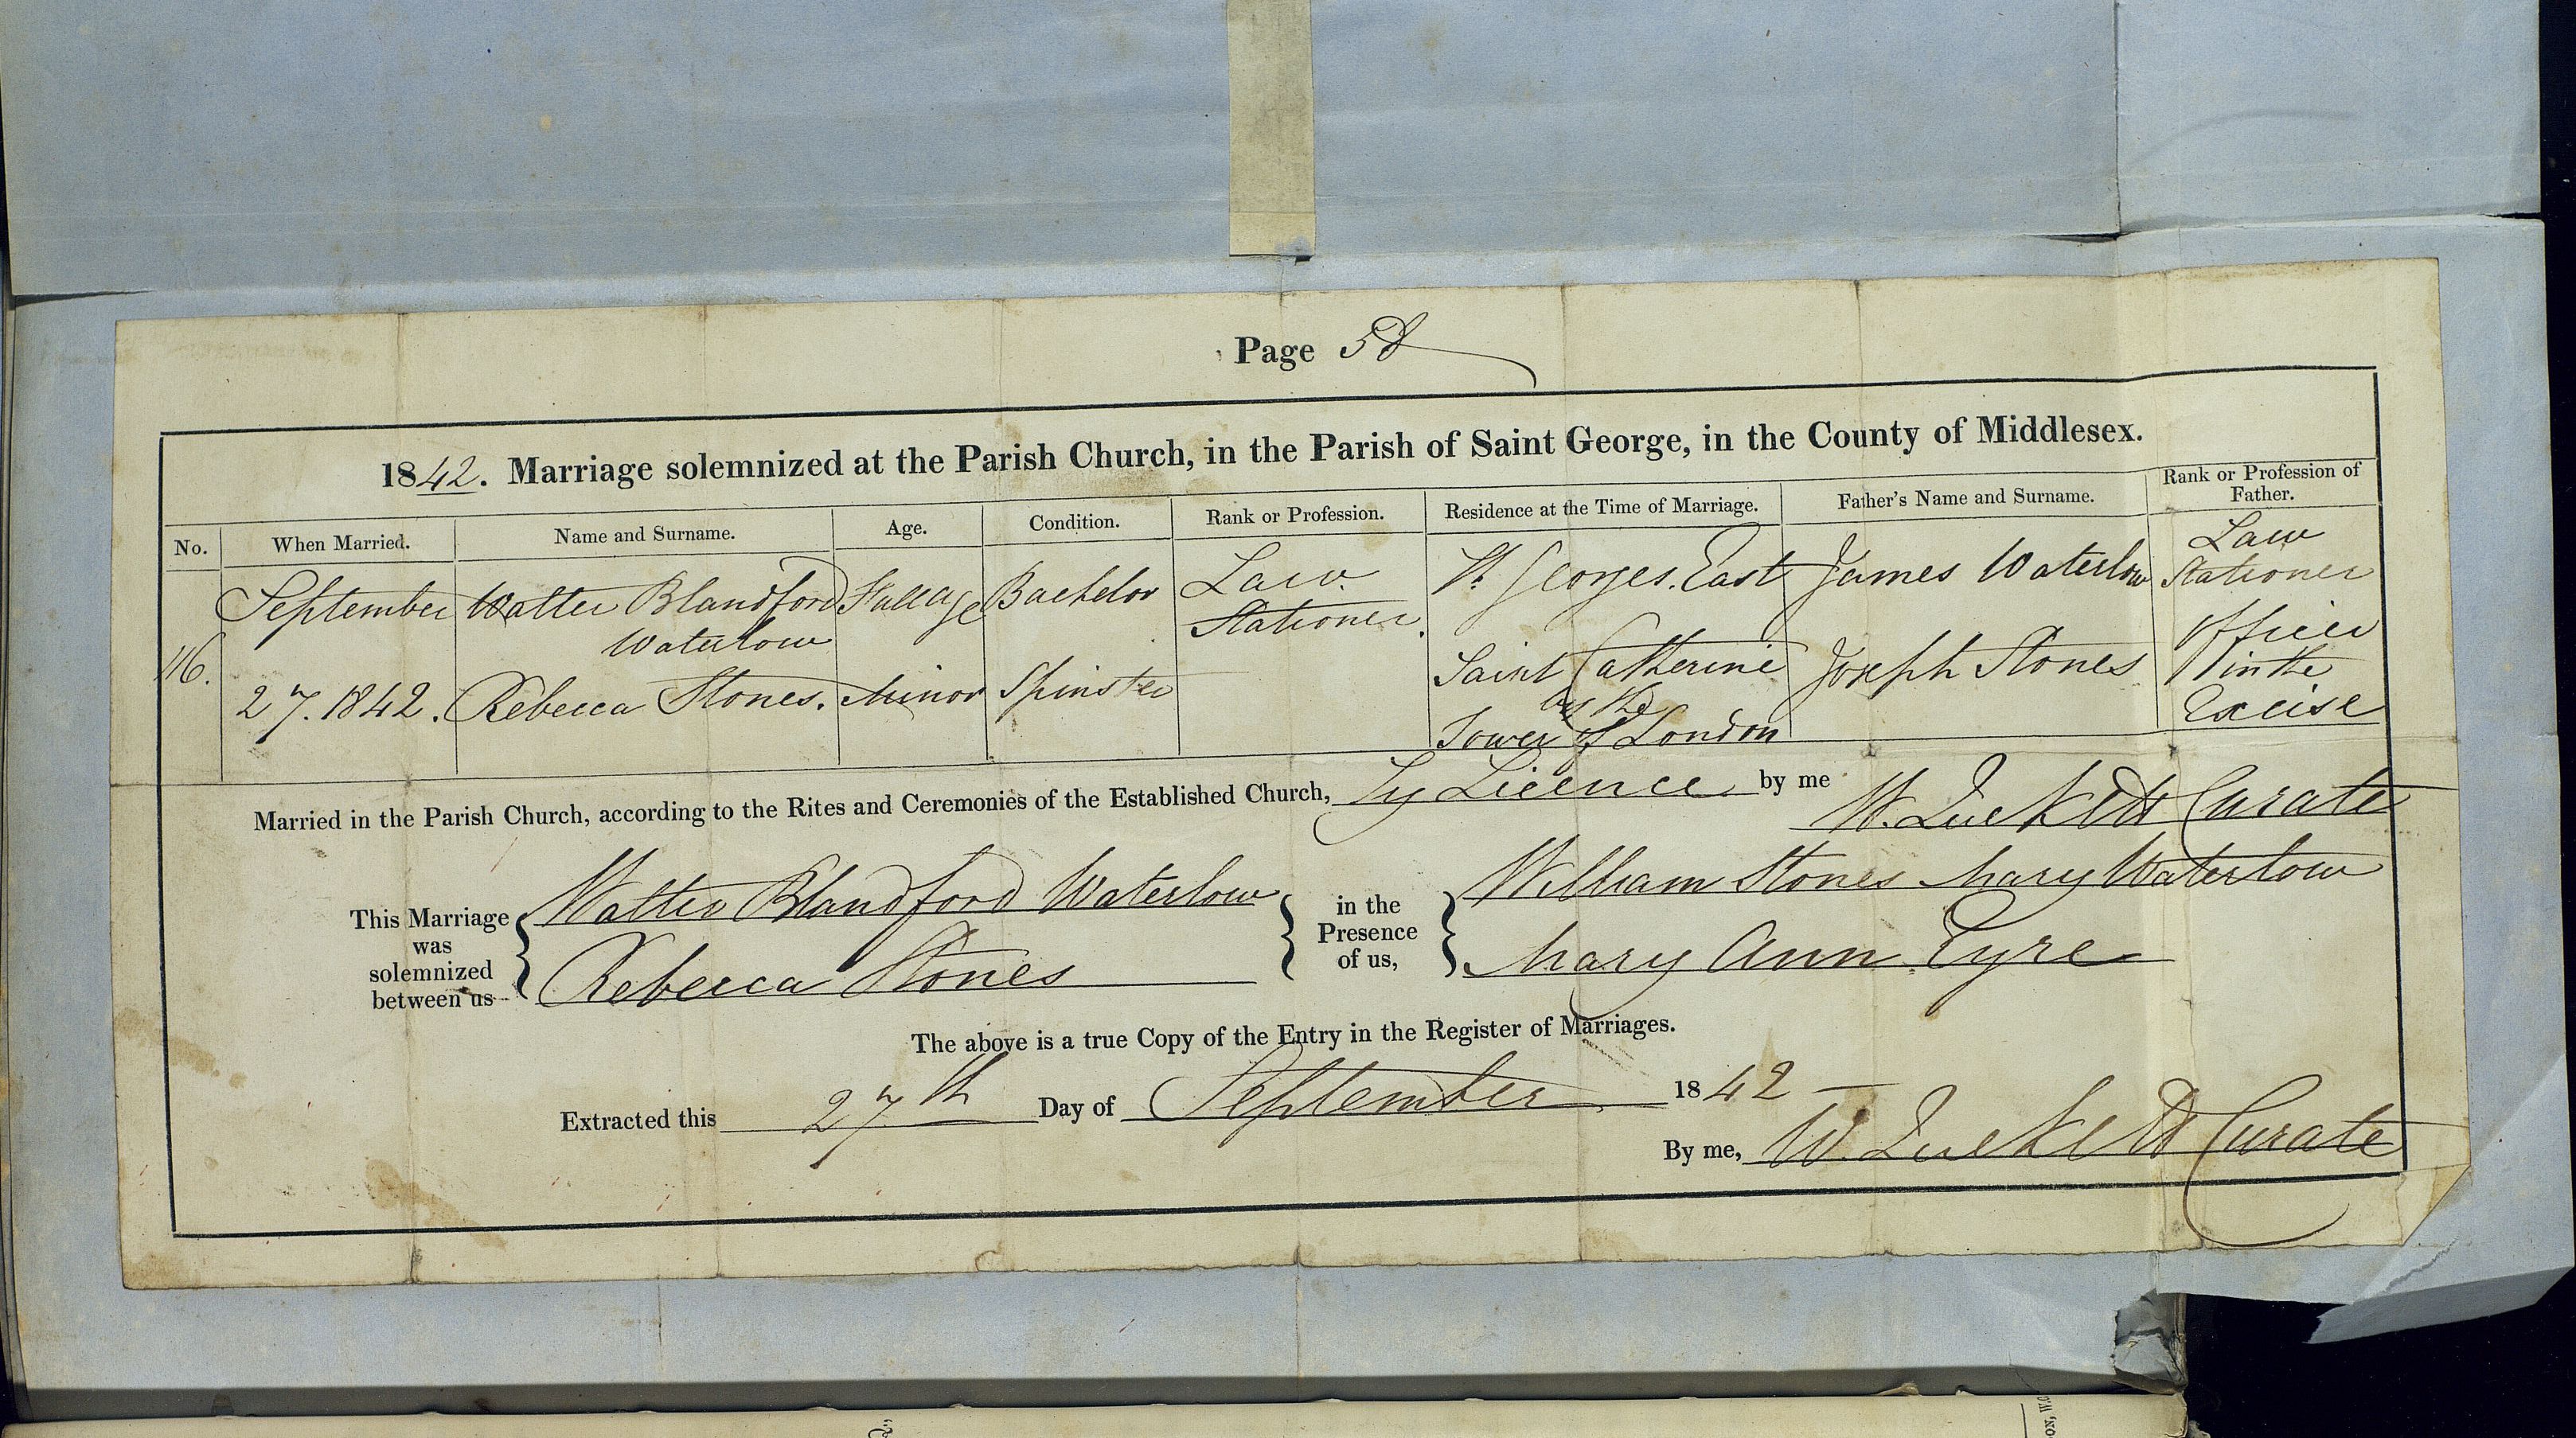 Page 58
1842. Marriage solemnized at the Parish Church, in the Parish of Saint George, in the County of Middlesex.
No. When Married. Name and Surname. Age. Condition. Rank or Profession. Residence at the Time of Marriage. Father's Name and Surname. Rank or Profession of Father.
116. September 27. 1842. Walter Blandford Waterlow Full age Bachelor Law Stationer. St Georges. East James Waterlow Law Stationer
Rebecca Stones. Minor Spinster Saint Catherine by the Tower of London Joseph Stones Officer in the Excise
Married in the Parish Church, according to the Rites and Ceremonies of the Established Church, by Licence by me W. Quekett Curate
This Marriage was solemnized between us
Walter Blandford Waterlow
Rebecca Stones
in the Presence of us,
William Stones Mary Waterlow
Mary Ann Eyre
The above is a true Copy of the Entry in the Register of Marriages.
Extracted this 27th Day of September 1842
By me, W. Quekett Curate